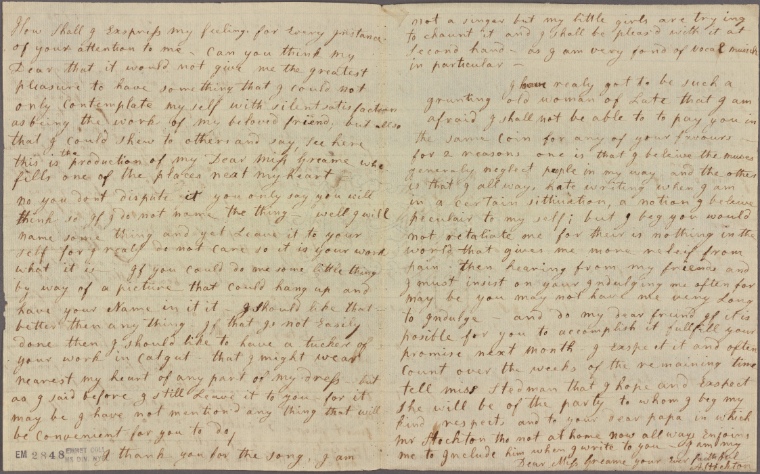 How Shall I Express my feelings for Every instance
of your attention to me - Can you think my
Dear that it would not give me the greatest
pleasure to have something that I could not
only Contemplate my self with silent satisfaction
as being the work of my beloved friend. but also
that I could shew to others and say, see here
this is the production of my Dear Miss Greame who
fills one of the places next my heart
no you dont dispute it you only say you will
think so if I do not name the thing - well I will
name some thing and yet Leave it to your
self for I realy do not Care so it is your work
what it is If you could do me some little thing
by way of a picture that Could hang up and
have your Name in it - I should like that
better then any thing. If that Is not Easily
done then I should like to have a tucker of
your work in Catgut that I might wear
nearest my heart of any part of my dress - but
as I said before I still Leave it to you for it
may be I have not mention'd any thing that will
be Convenient for you to do,
I thank you for the song, I am
EM 2848
EMMET COLL
MS DIV NYPL
not a singer but my little girls are trying
to chaunt it and I shall be pleas'd with it at
second hand - as I am very fond of vocal musick
in particular -
I have realy got to be such a
grunting old woman of Late that I am
afraid I shall not be able to to pay you in
the same Coin for any of your favours -
for 2 reasons one is that I beleive the muses
generaly neglect people in my way and the other
is that I allways hate writing when I am
in a certain sittuation, a notion I beleive
peculair to my self; but I beg you would
not retaliate me for their is nothing in the
world that gives me more releif from
pain then hearing from my friends and
I must insist on your Indulging me often for
may be you may not have me very Long
to Indulge - and do my dear friend if it is
posible for you to accomplish it fullfill your
promise next month I Expect it and often
Count over the weeks of the remaining time
tell miss Stedman that I hope and Expect
she will be of the party to whom I beg my
kind respect, and to your dear papa in which
Mr Stockton tho not at home now allways Enjoins
me to Include him when I write to you - I am my
Dear Miss Greame your Ever faithful
A: Stockton